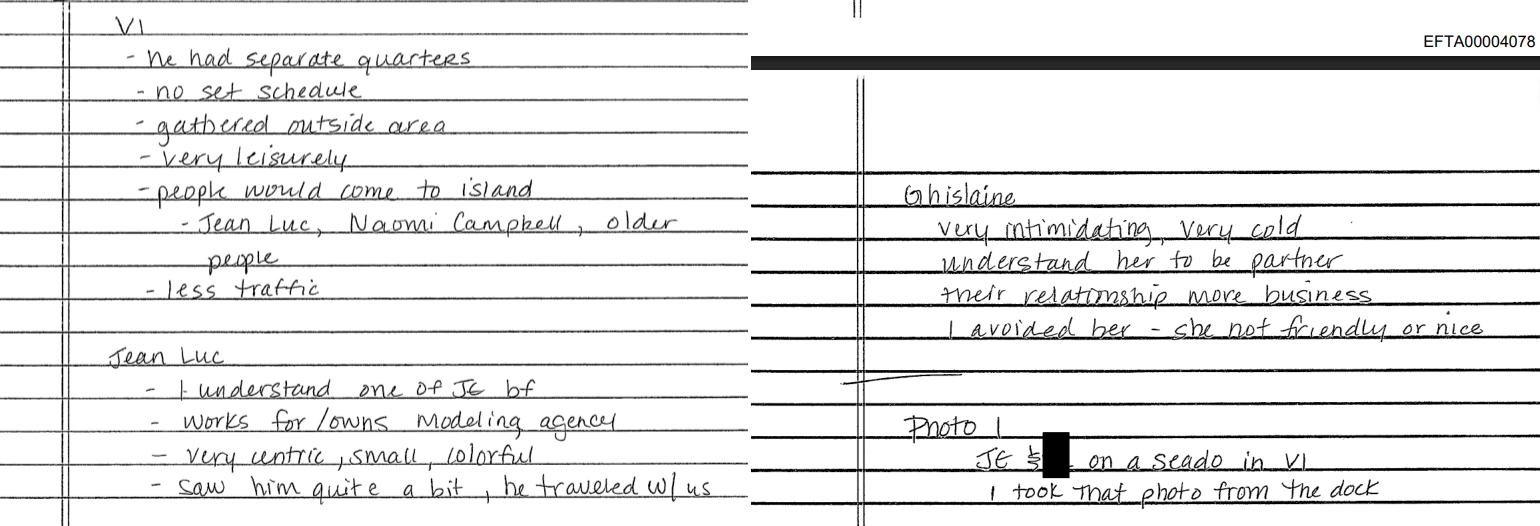 VI
- he had separate quarters
- no set schedule
- gathered outside area
- very leisurely
- people would come to island
- Jean Luc, Naomi Campbell, older
people
- less traffic
Jean Luc
- I understand one of JE bf
- works for/owns modeling agency
- very centric, small, colorful
- saw him quite a bit, he traveled w/ us
EFTA00004078
Ghislaine
very intimidating, very cold
understand her to be partner
their relationship more business
I avoided her - she not friendly or nice
Photo 1
JE & on a seado in VI
I took that photo from the dock